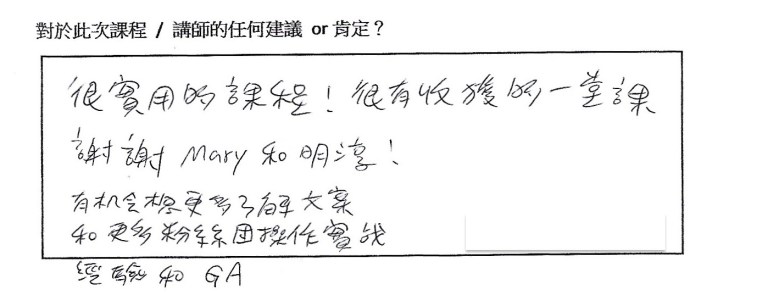 對於此次課程 / 講師的任何建議 or 肯定？
很實用的課程！很有收獲的一堂課
謝謝 Mary 和明淳！
有机会想更多了解文案
和更多粉絲團操作實战
經驗和 GA